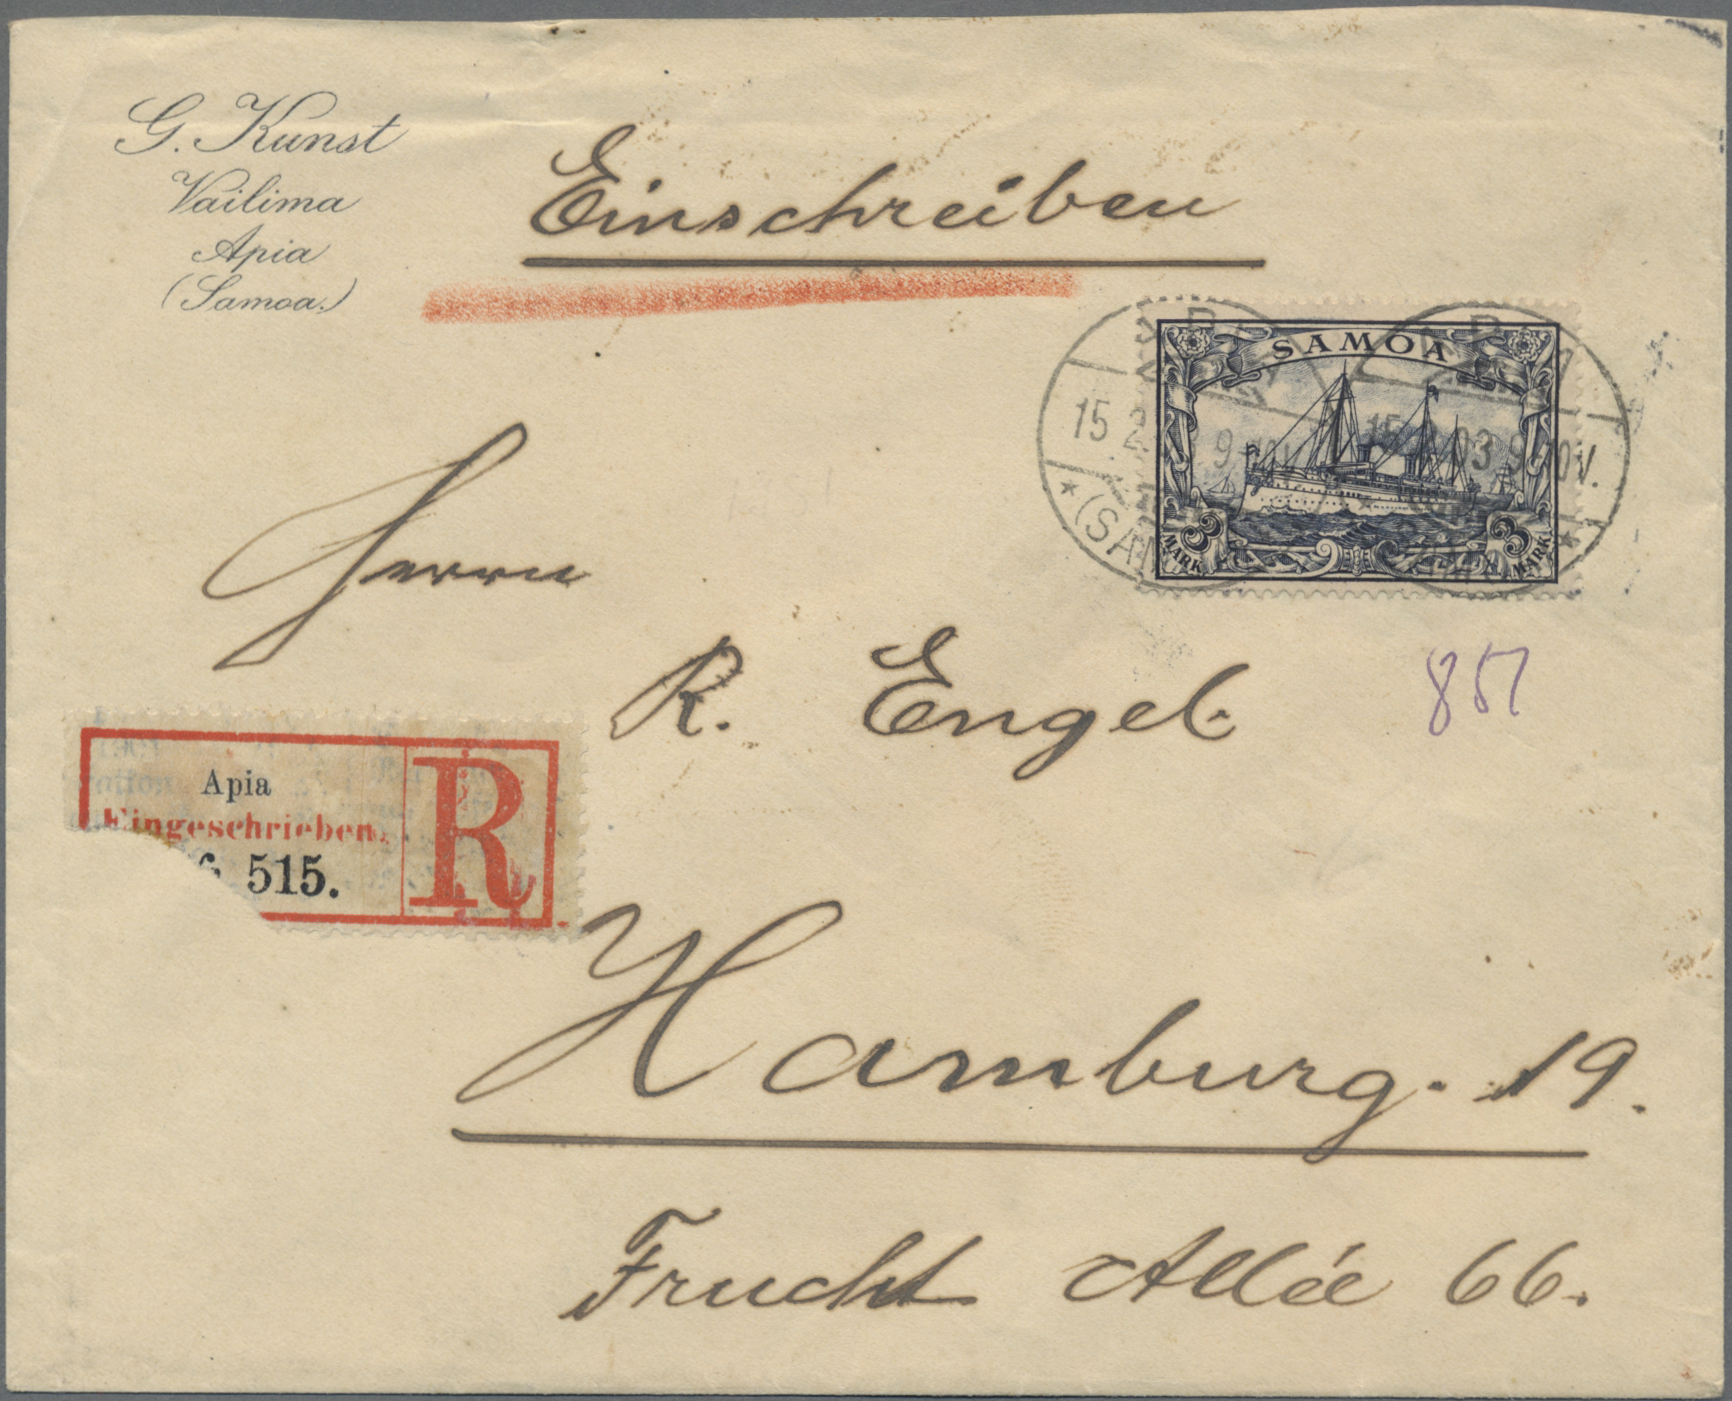 G. Kunst
Vailima
Apia
(Samoa.)
Einschreiben
SAMOA
3 MARK
3 MARK
15 2 9
15 03 9 0V.
★ (SA
Herrn
R. Engel.
857
Apia
Eingeschrieben.
515.
R
Hamburg. 19.
Frucht Allée 66.